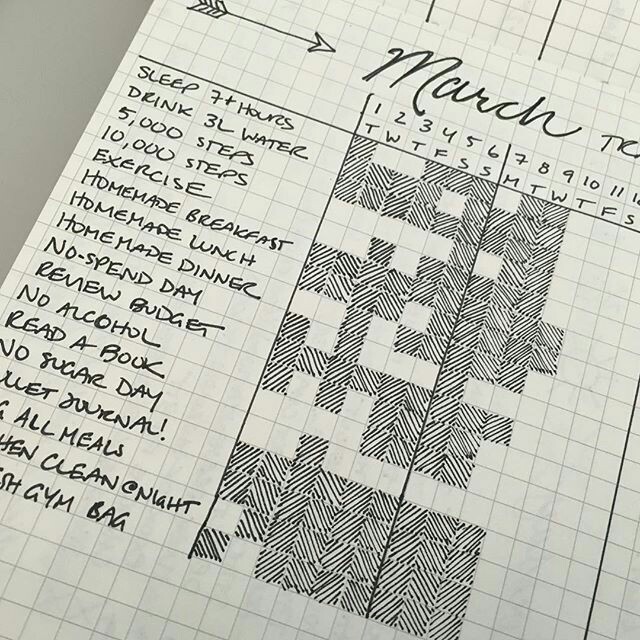 March TR
1 2 3 4 5 6 7 8 9 10 11
T W T F S S M T W T F S
SLEEP 7+ HOURS
DRINK 3L WATER
5,000 STEPS
10,000 STEPS
EXERCISE
HOMEMADE BREAKFAST
HOMEMADE LUNCH
HOMEMADE DINNER
NO-SPEND DAY
REVIEW BUDGET
NO ALCOHOL
READ A BOOK
NO SUGAR DAY
LLET JOURNAL!
G ALL MEALS
HEN CLEAN @ NIGHT
SH GYM BAG